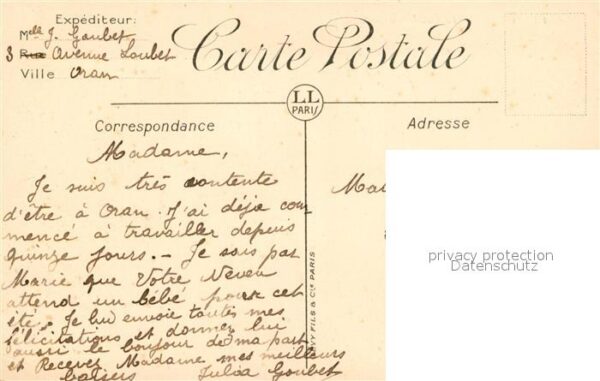 Expéditeur:
Mlle J. Goubet
3 Rue Avenue Loubet
Ville Oran
Carte Postale
LL
PARIS
Correspondance
Adresse
Madame,
Je suis très contente
d'être à Oran. J'ai déja com
mencé à travailler depuis
quinze jours. - Je sais par
Marie que Votre Neveu
attend un bébé pour cet
été. Je lui envoie toutes mes
félicitations et donner lui
aussi le bonjour de ma part
et Recevez Madame mes meilleurs
baisers Julia Goubet
Ma
VY FILS & Cie PARIS
privacy protection
Datenschutz